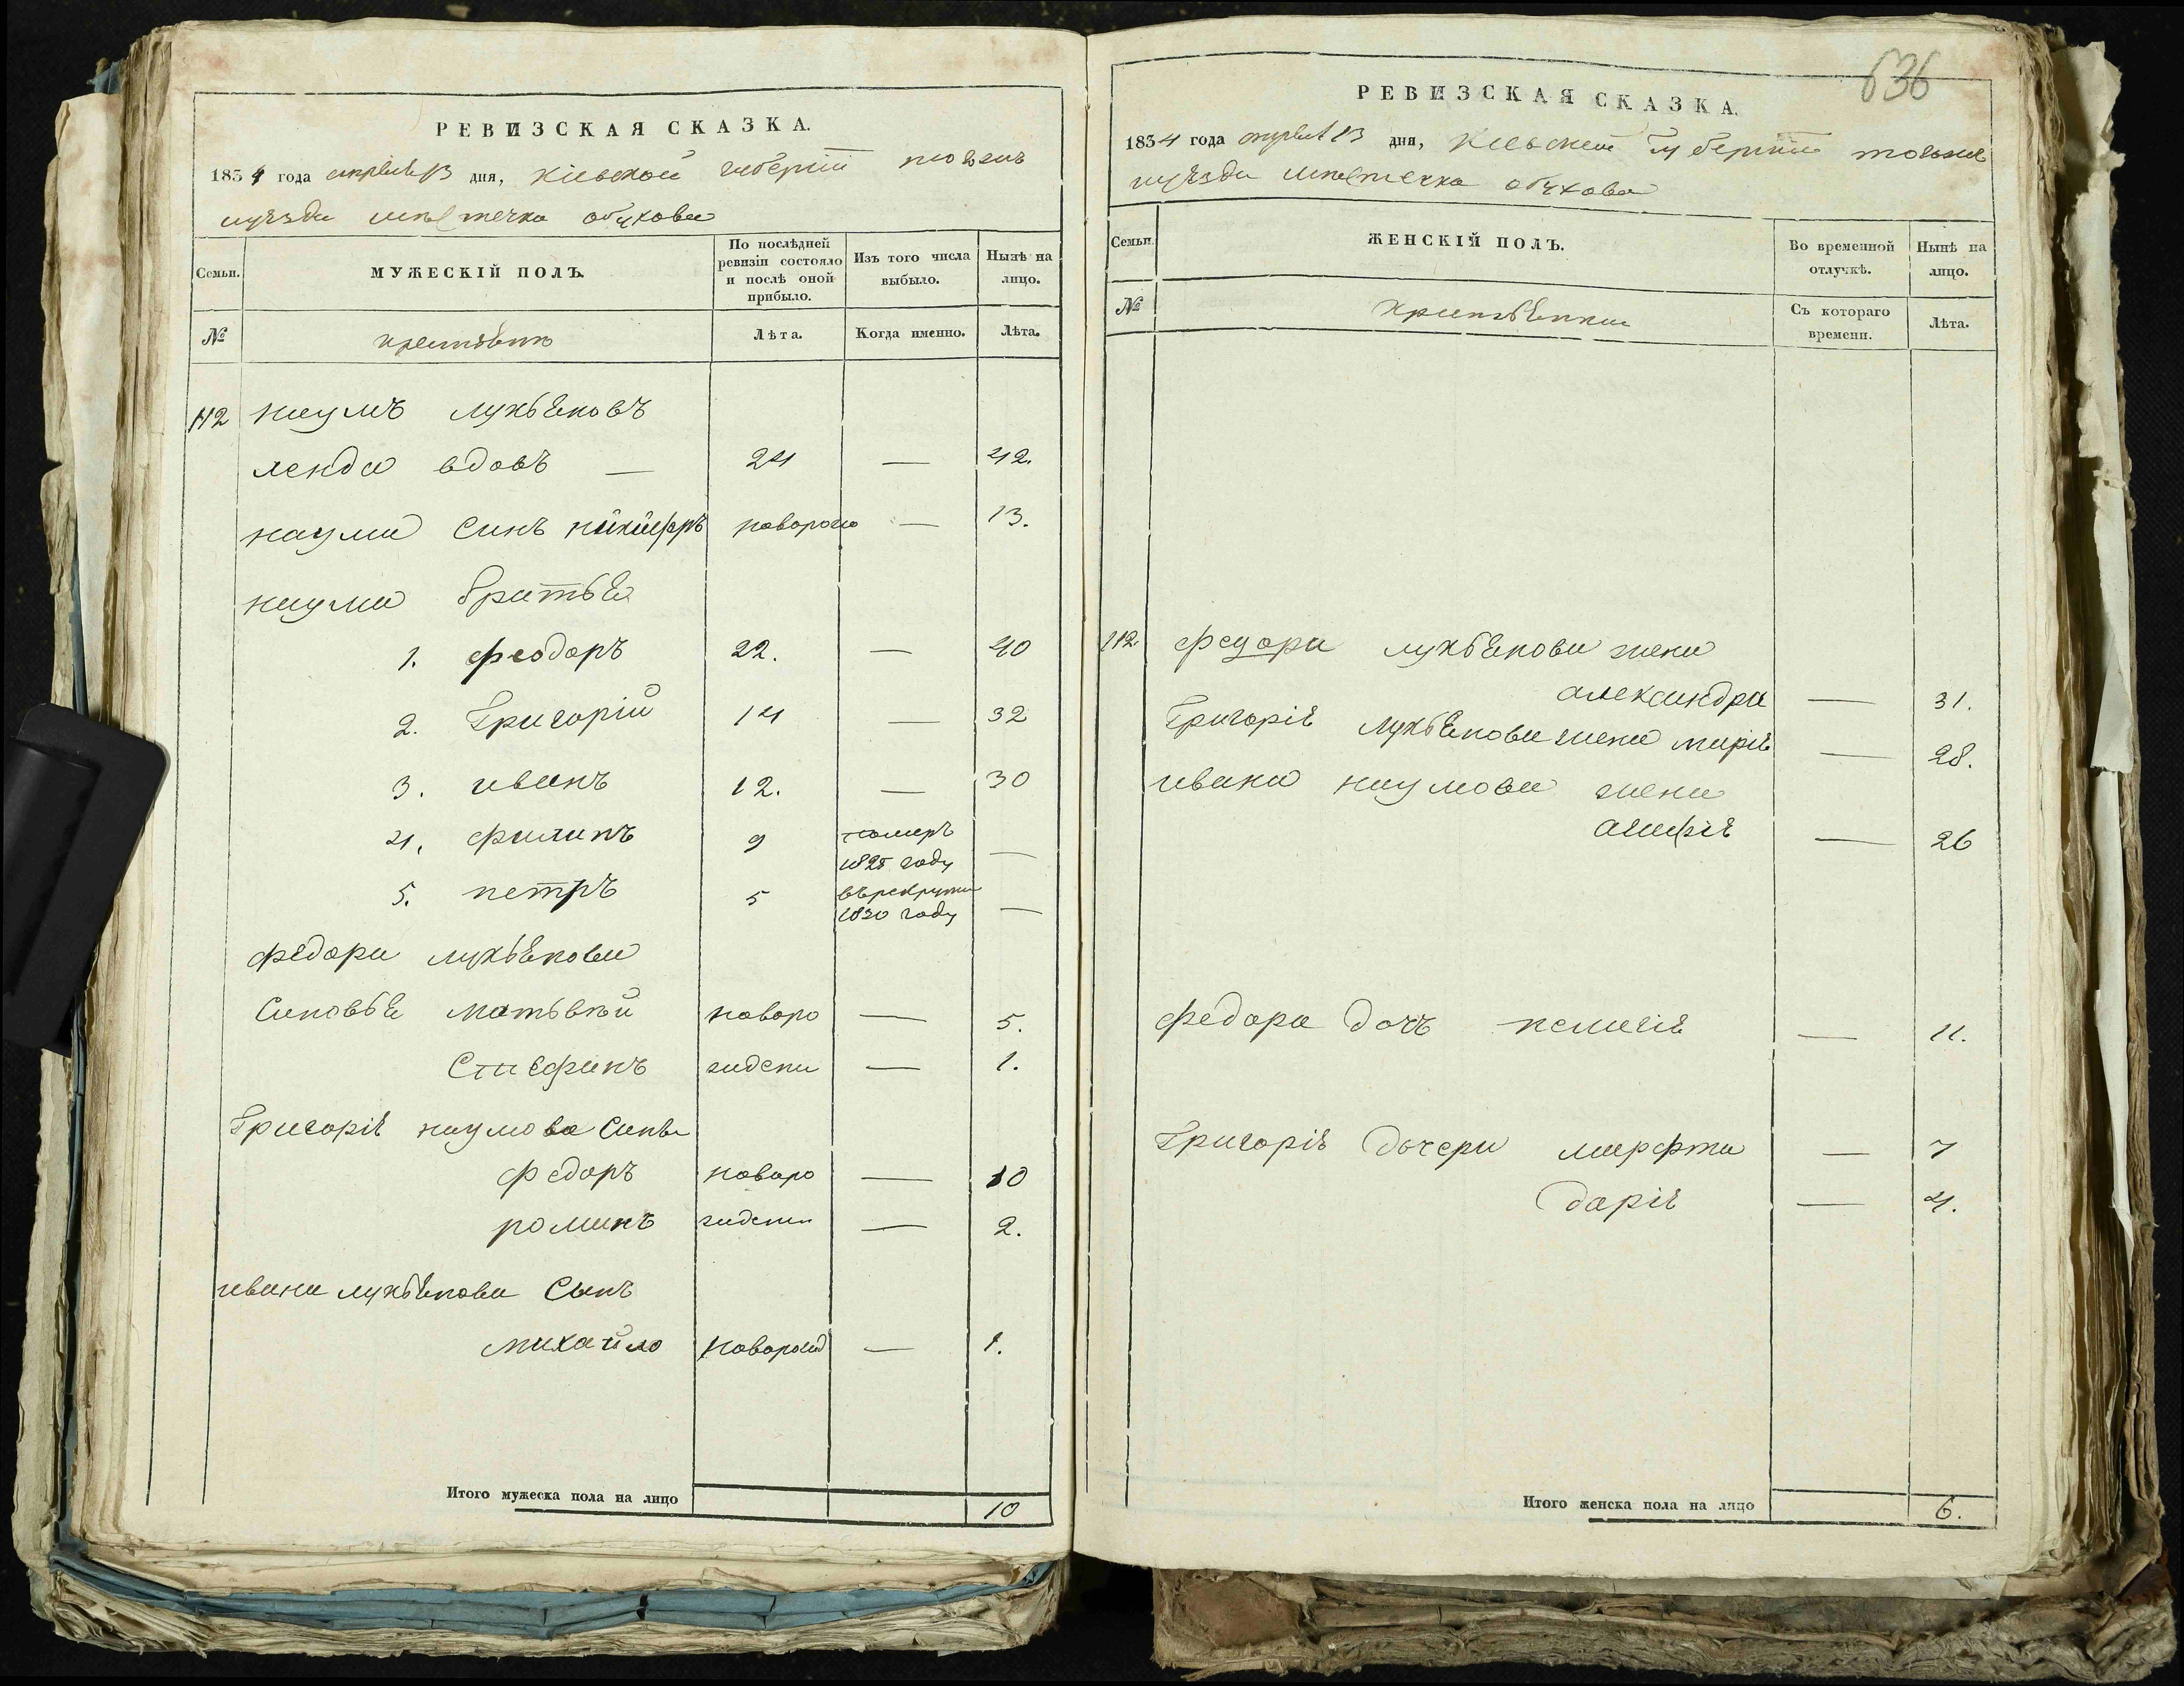 РЕВИЗСКАЯ СКАЗКА.
1834 года апреля 13 дня, Кіевской губерніи
уезда местечка обухова
Семьи.
МУЖЕСКІЙ ПОЛЪ.
По послѣдней ревизіи состояло и послѣ оной прибыло.
Изъ того числа выбыло.
Нынѣ на лицо.
№
Лѣта.
Когда именно.
Лѣта.
112 наумъ лукьяновъ
ленда вдовъ — 24 — 42.
наума синъ никифоръ новорож — 13.
наума братья
1. феодоръ 22. — 40
2. Григорій 14 — 32
3. иванъ 12. — 30
4. филипъ 9 померъ 1825 году —
5. петръ 5 въ рекруты 1830 году —
федора лукьянова
Синовья матьвѣй новоро — 5.
Стефанъ ждени — 1.
Григорія наумова Сины
федоръ новоро — 10
романъ ждени — 2.
ивана лукьянова Сынъ
михайло новорожд — 1.
Итого мужеска пола на лицо 10
636
РЕВИЗСКАЯ СКАЗКА.
1834 года апреля 13 дня, Кіевской губерніи
уезда местечка обухова
Семьи.
ЖЕНСКІЙ ПОЛЪ.
Во временной отлучкѣ.
Нынѣ на лицо.
№
Съ котораго времени.
Лѣта.
112 федора лукьянова жена
александра — 31.
Григорія лукьянова жена марія — 28.
ивана наумова жена
— 26
федора дочъ пелагія — 11.
Григорія дочери марфта — 7
дарія — 4.
Итого женска пола на лицо 6.